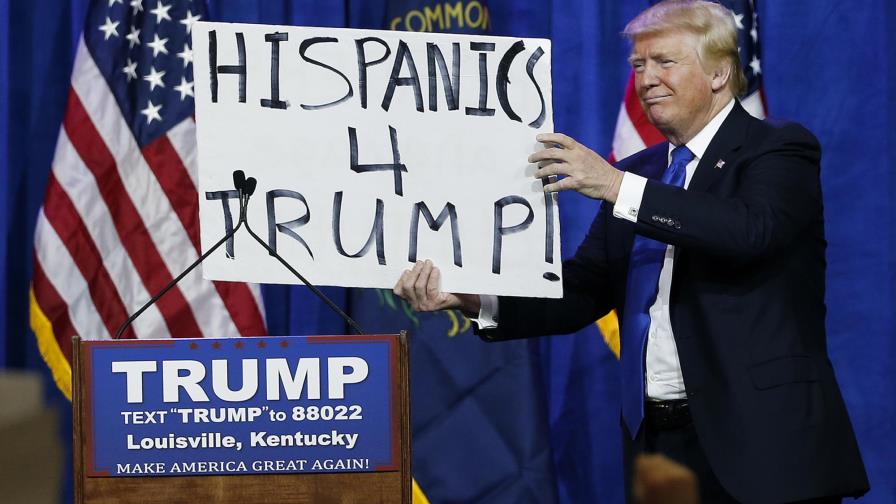 COMMON
HISPANICS
4
TRUMP!
TRUMP
TEXT "TRUMP" to 88022
Louisville, Kentucky
MAKE AMERICA GREAT AGAIN!